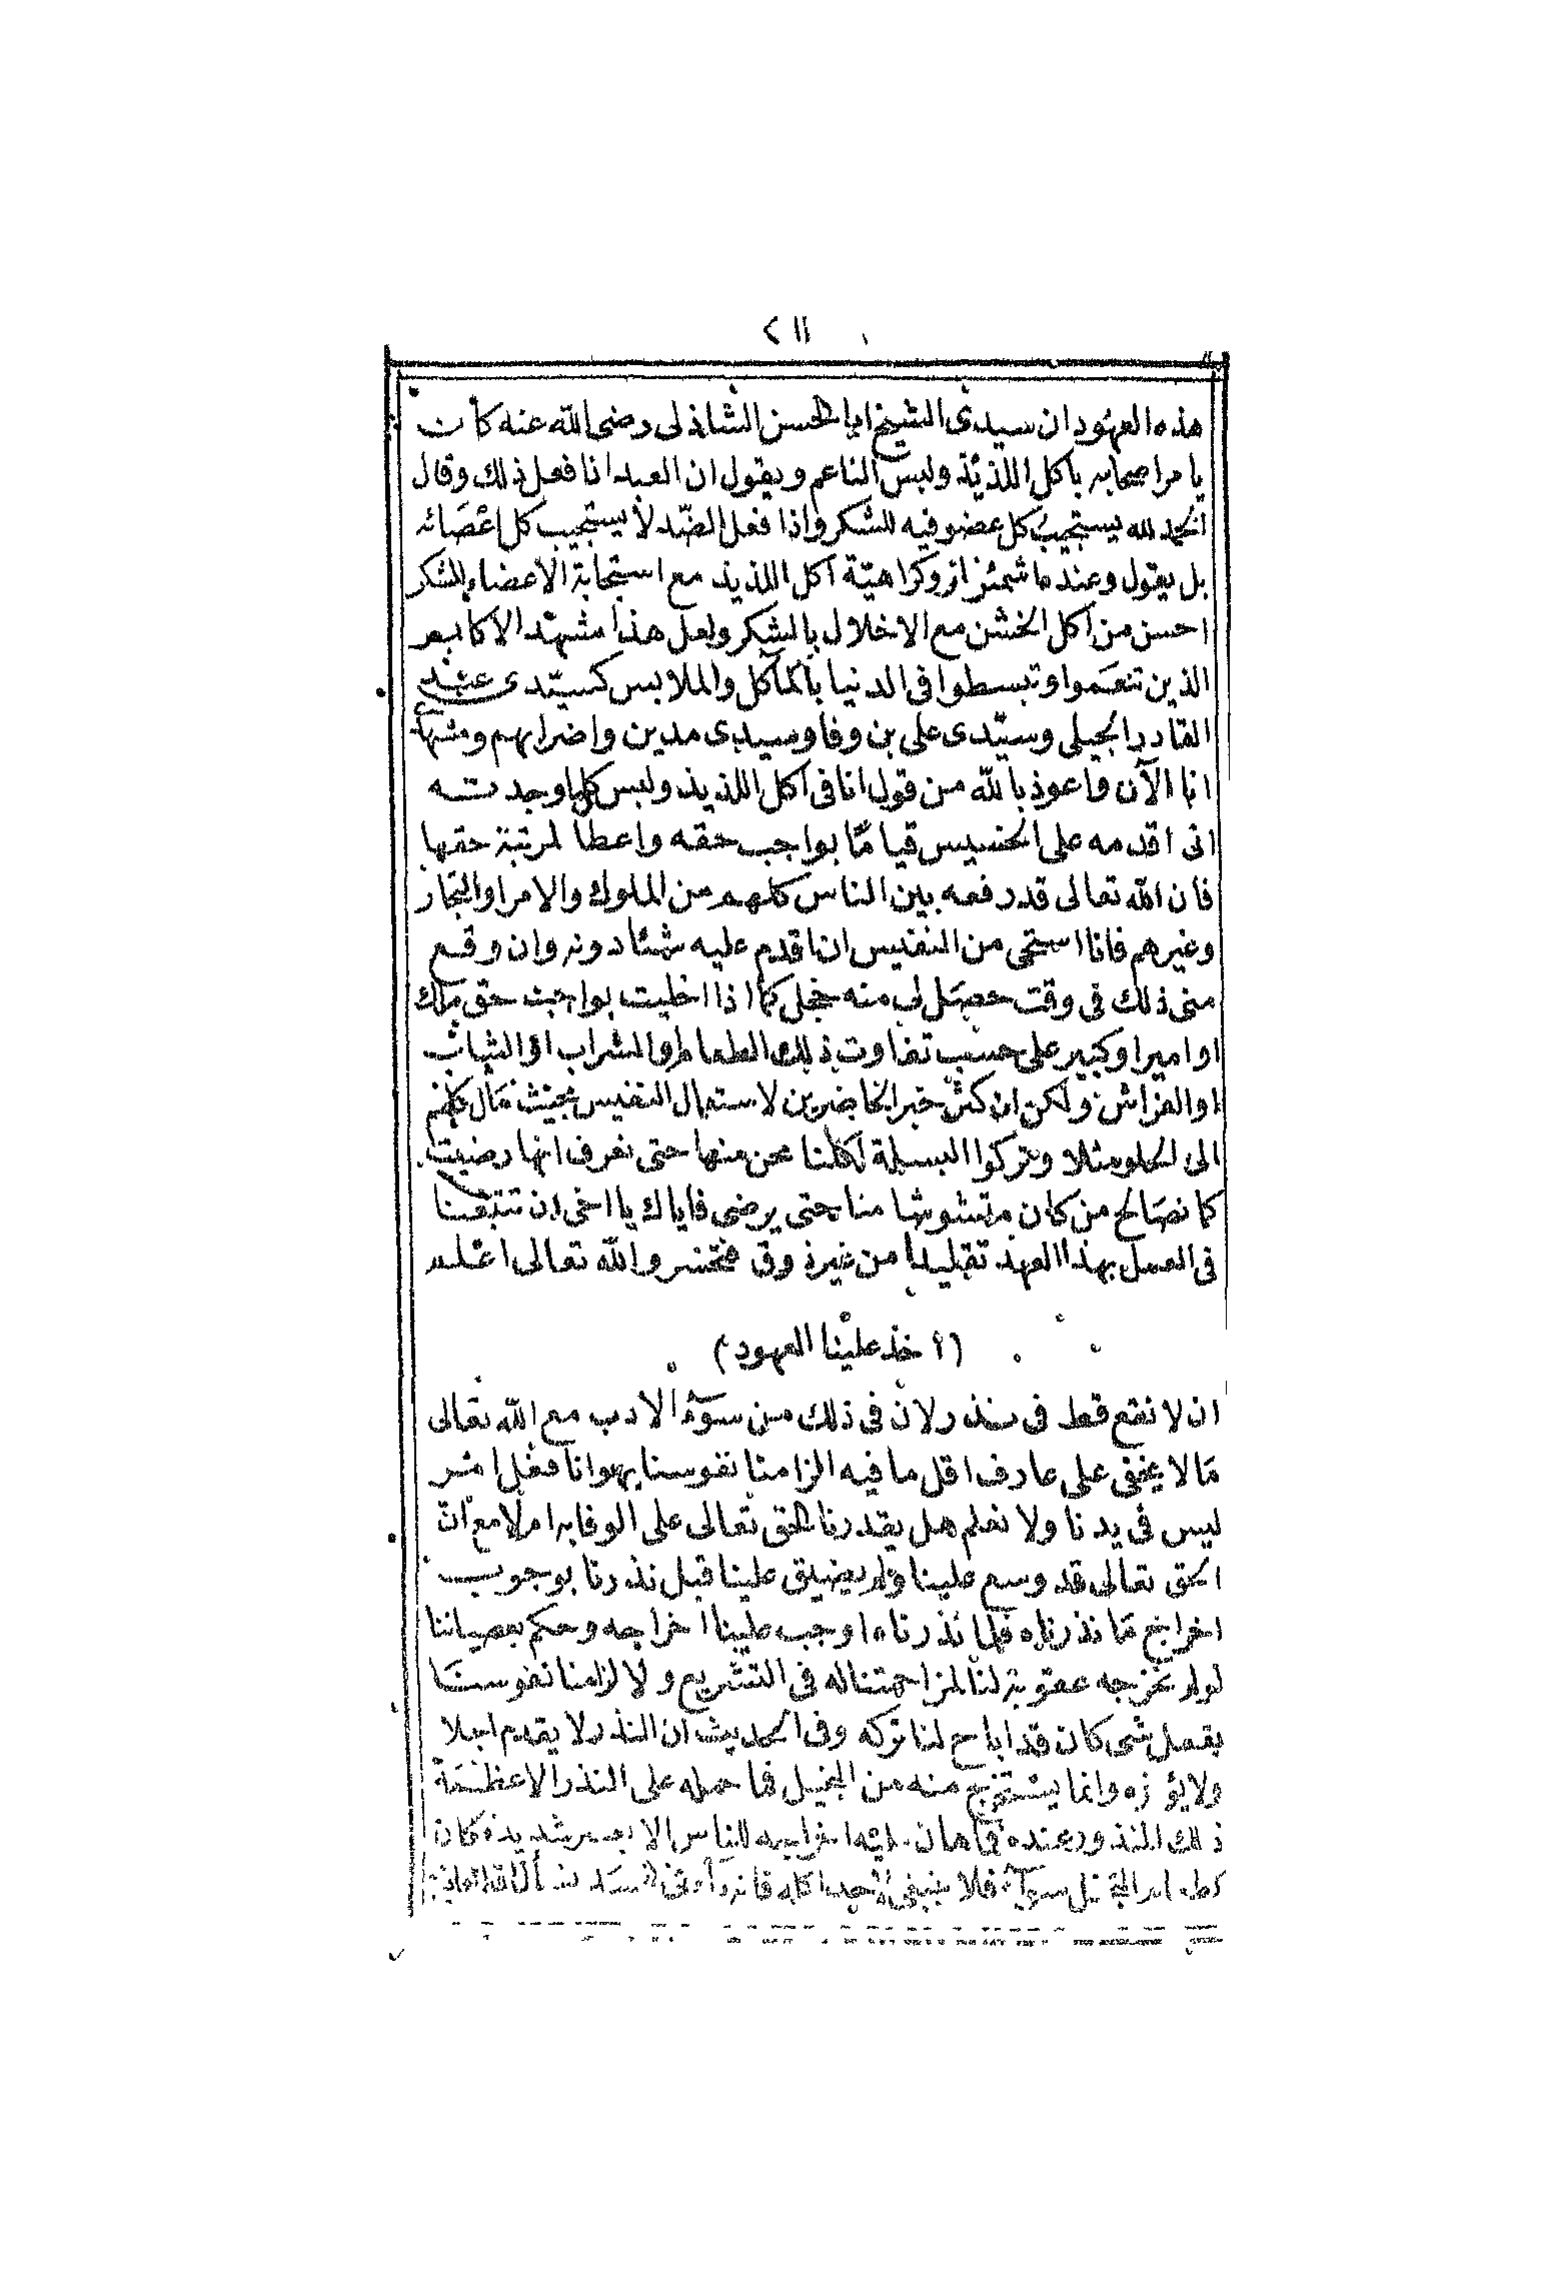 ٢١١
هذه العهود ان سيدى الشيخ ابا الحسن الشاذلى رضى الله عنه كان
يامر اصحابه باكل اللذيذ ولبس الناعم ويقول ان العبد اذا فعل ذلك وقال
الحمد لله يستجيب كل عضو فيه للشكر واذا فعل الضد لا يستجيب كل اعضائه
بل يقول وعنده اشمئزاز وكراهية اكل اللذيذ مع استجابة الاعضاء للشكر
احسن من اكل الخشن مع الاخلال بالشكر ولعل هذا مشهد الاكابر
الذين تنعموا وتبسطوا فى الدنيا بالمآكل والملابس كسيدى عبد
القادر الجيلى وسيدى على بن وفا وسيدى مدين واضرابهم ومشهد
انا الآن واعوذ بالله من قول انا فى اكل اللذيذ ولبس كلما وجدته
انى اقدمه على الخسيس قياما بواجب حقه واعطا لمرتبة حقها
فان الله تعالى قد رفعه بين الناس كلهم من الملوك والامرا والتجار
وغيرهم فانا استحى من النفيس ان اقدم عليه شئا دونه وان وقع
منى ذلك فى وقت حصل لى منه خجل كما اذا اخليت بواجب حق ملك
او امير او كبير على حسب تفاوت ذلك الطعام او الشراب او الثياب
او الفراش ولكن ان كثر خبر الحاضرين لاستعمال النفيس بحيث مال كلهم
الى الحلو مثلا وتركوا البسلة اكلنا نحن منها حتى نعرف انها رضيت
كما نصالح من كان متشوشا منا حتى يرضى فاياك يا اخى ان تتبعنا
فى العمل بهذا العهد تقليدا من غير ذوق فتخسر والله تعالى اعلم
(أخذ علينا العهود)
ان لا نقع قط فى نذر لان فى ذلك من سوء الادب مع الله تعالى
مالا يخفى على عارف اقل ما فيه الزامنا نفوسنا بهوانا فعل امر
ليس فى يدنا ولا نعلم هل يقدرنا الحق تعالى على الوفا به ام لا مع ان
الحق تعالى قد وسع علينا ولم يضيق علينا قبل نذرنا بوجوب
اخراج ما نذرناه فلما نذرناه اوجب علينا اخراجه وحكم بعصياننا
لو لم نخرجه عقوبة لنا لمزاحمتنا له فى التشريع ولالزامنا نفوسنا
بفعل شى كان قد اباح لنا تركه وفى الحديث ان النذر لا يقدم اجلا
ولا يؤخره وانما يستخرج منه من البخيل فما حمله على النذر الا عظمة
ذلك المنذور عنده فما هان عليه اخراجه للناس الا بعسر شديد فكان
فلا ينبغى لاحد اكله فانه